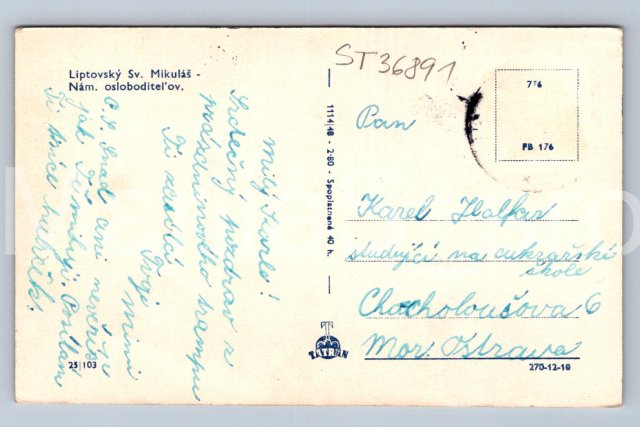 Liptovský Sv. Mikuláš -
Nám. osloboditeľov.
ST36891
776
FB 176
Milý Karle!
Srdečný pozdrav z
prázdninového trampu
Ti zasílá
Tvoje
mimi
P.S. Snad ani nevěříš
jak Tě miluji. Posílám
Ti tisíce hubiček.
1114/48 - 2-80 - Spoplatnené 40 h.
Pan
Karel Halfar
studující na cukrářské
škole
Chocholoušova 6
Mor. Ostrava
TATRAN
25/103
270-12-10